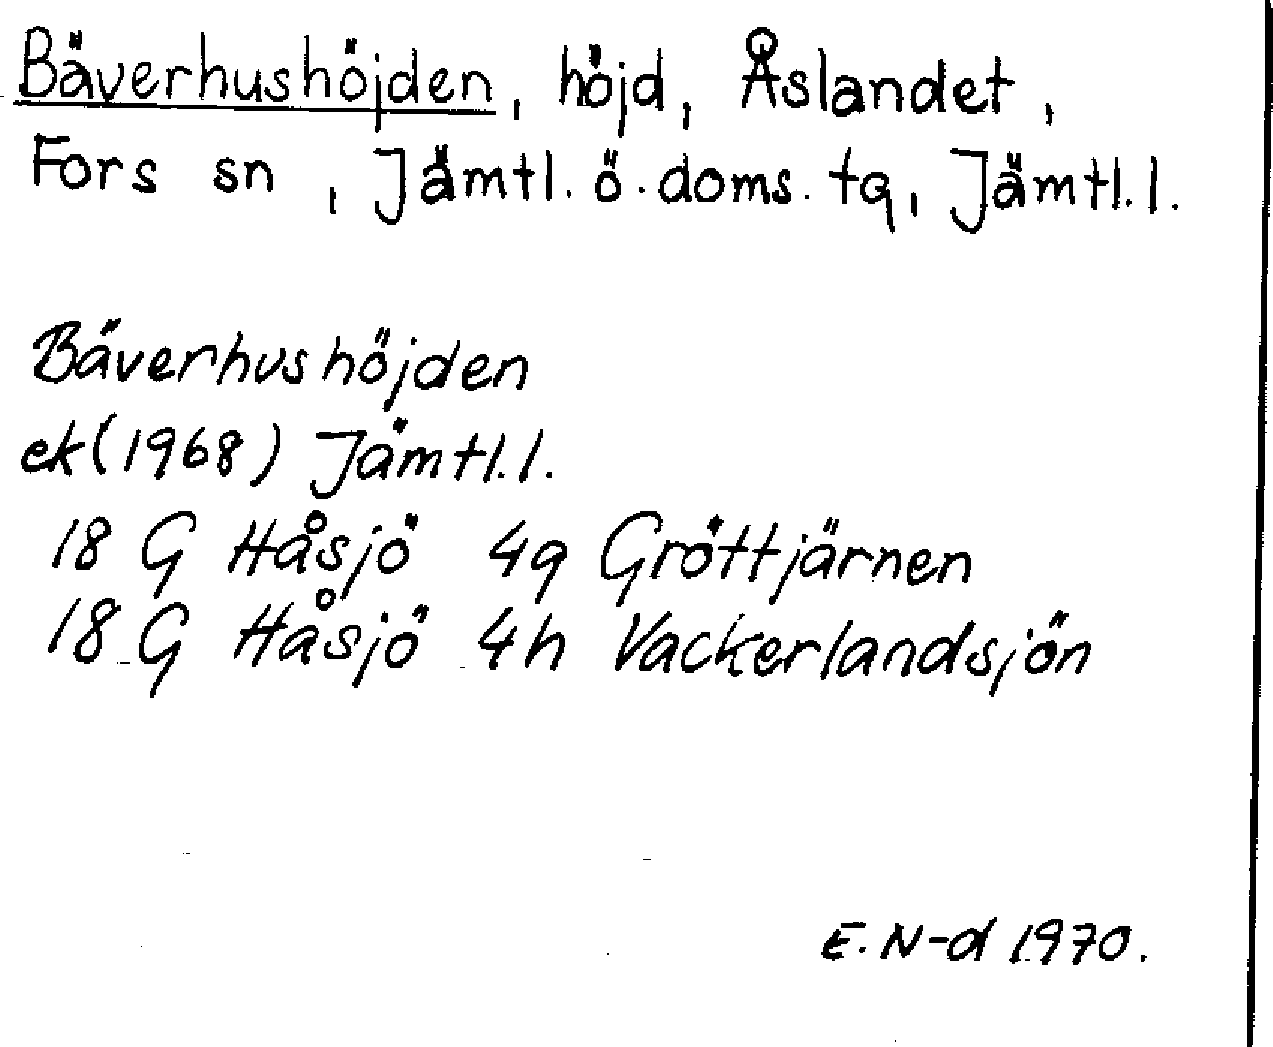 Bäverhushöjden, höjd, Åslandet,
Fors sn, Jämtl. ö. doms. tg, Jämtl. l.
Bäverhushöjden
ek (1968) Jämtl. l.
18 G Håsjö 4g Gröttjärnen
18 G Håsjö 4h Vackerlandsjön
E. N-d 1970.